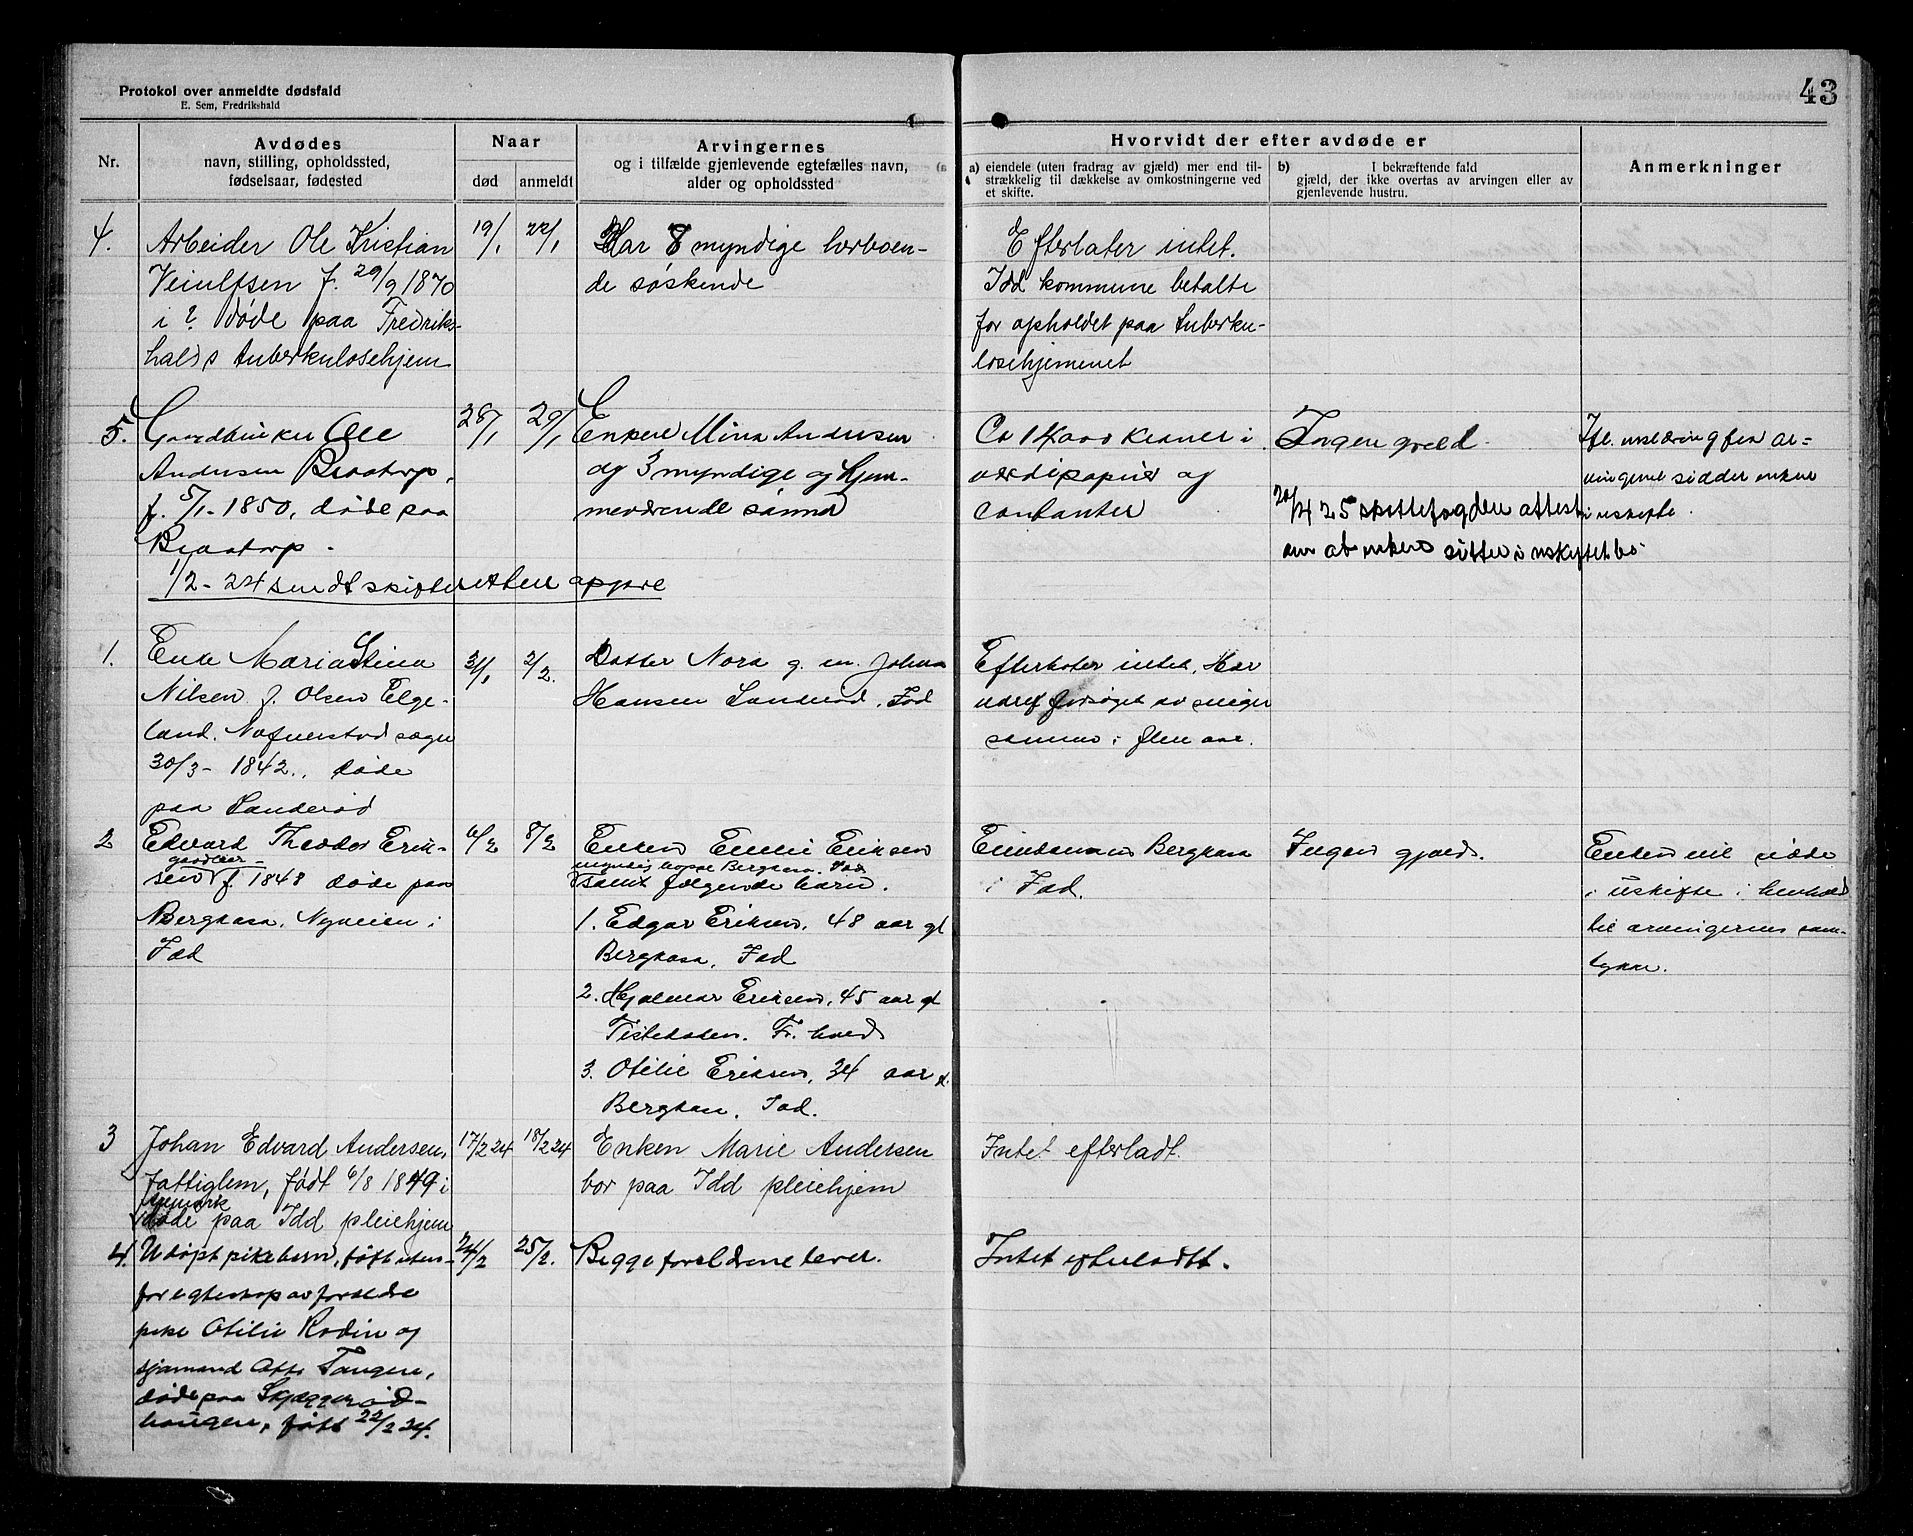 Protokol over anmeldte dødsfald
E. Sem, Fredrikshald
43
Nr.
Avdødes
navn, stilling, opholdssted,
fødselsaar, fødested
Naar
død
anmeldt
Arvingernes
og i tilfælde gjenlevende egtefælles navn,
alder og opholdssted
Hvorvidt der efter avdøde er
a) eiendele (uten fradrag av gjæld) mer end til-
strækkelig til dækkelse av omkostningerne ved
et skifte.
b) I bekræftende fald
gjæld, der ikke overtas av arvingen eller av
gjenlevende hustru.
Anmerkninger
4.
Arbeider Ole Kristian
Veiulfsen f. 29/9 1870
i ? døde paa Fredriks-
halds Tuberkulosehjem
19/1
22/1
Har 8 myndige herboen-
de søskende
Efterlater intet.
Idd kommune betalte
for opholdet paa Tuberku-
losehjemmet
5.
Gaardbruker Ole
Andersen Braatorp,
f. 5/1-1850, døde paa
Braatorp.
1/2-24 sendt skifteretten opgave
28/1
29/1
Enken Mina Andersen
og 3 myndige og hjem-
meværende sønner
Ca 14000 kroner i
værdipapirer og
contanter
Ingen gjæld.
20/4 25 skiftefogden attest
om at enken sitter i uskiftet bo.
Ifl. erklæring fra ar-
vingene sidder enken
i uskifte.
1.
Enke Maria Stina
Nilsen f. Olsen Elge-
land. Nafverstad sogn
30/3-1842., døde
paa Sanderød
31/1
2/2.
Datter Nora g. m. Johan
Hansen Sanderød, Idd
Efterlater intet. Har
været forsørget av sviger
sønnen i flere aar.
2
Edvard Theodor Erik-
gaardeier
sen f. 1848 døde paa
Berghasa. Nyveien i
Idd
6/2
8/2
Enken Emelie Eriksen
Berghasa. Idd
samt følgende barn.
1. Edgar Eriksen, 48 aar gl
Berghasa, Idd
2. Hjalmar Eriksen, 45 aar gl
Tistedalen. Fr. hald
3. Otilie Eriksen, 34 aar gl.
Berghasa, Idd.
Eiendommen Berghasa
i Idd.
Ingen gjæld.
Enken vil sidde
i uskifte i henhold
til arvingernes sam-
tykke.
3
Johan Edvard Andersen,
Fattiglem, født 6/8 1849 i
Aremark
døde paa Idd pleiehjem
17/2 24
18/2 24
Enken Marie Andersen
bor paa Idd pleiehjem
Intet efterladt.
4.
Udøpt pikebarn, født uten-
for egteskap av foreldre
pike Otilie Rodin og
sjømand Otto Tangen,
døde paa Skjæggerød-
haugen, født 22/2 24.
24/2
25/2.
Begge forældrene lever.
Intet efterladt.